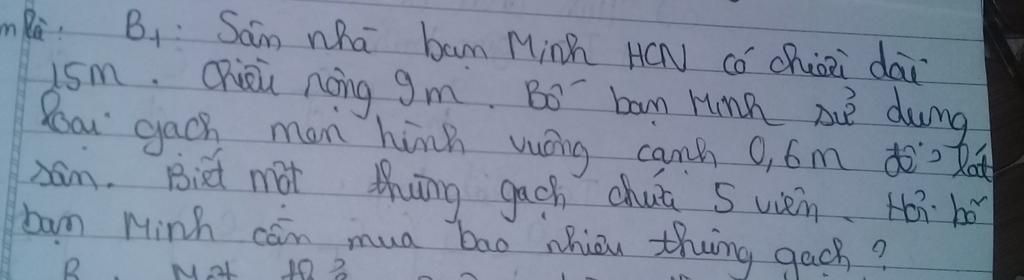 B₁: Sân nhà bạn Minh HCN có chiều dài
15m. Chiều rộng 9m. Bố bạn Minh sử dụng
loại gạch men hình vuông cạnh 0,6m để lát
sân. Biết một thùng gạch chứa 5 viên. Hỏi bố
bạn Minh cần mua bao nhiêu thùng gạch?